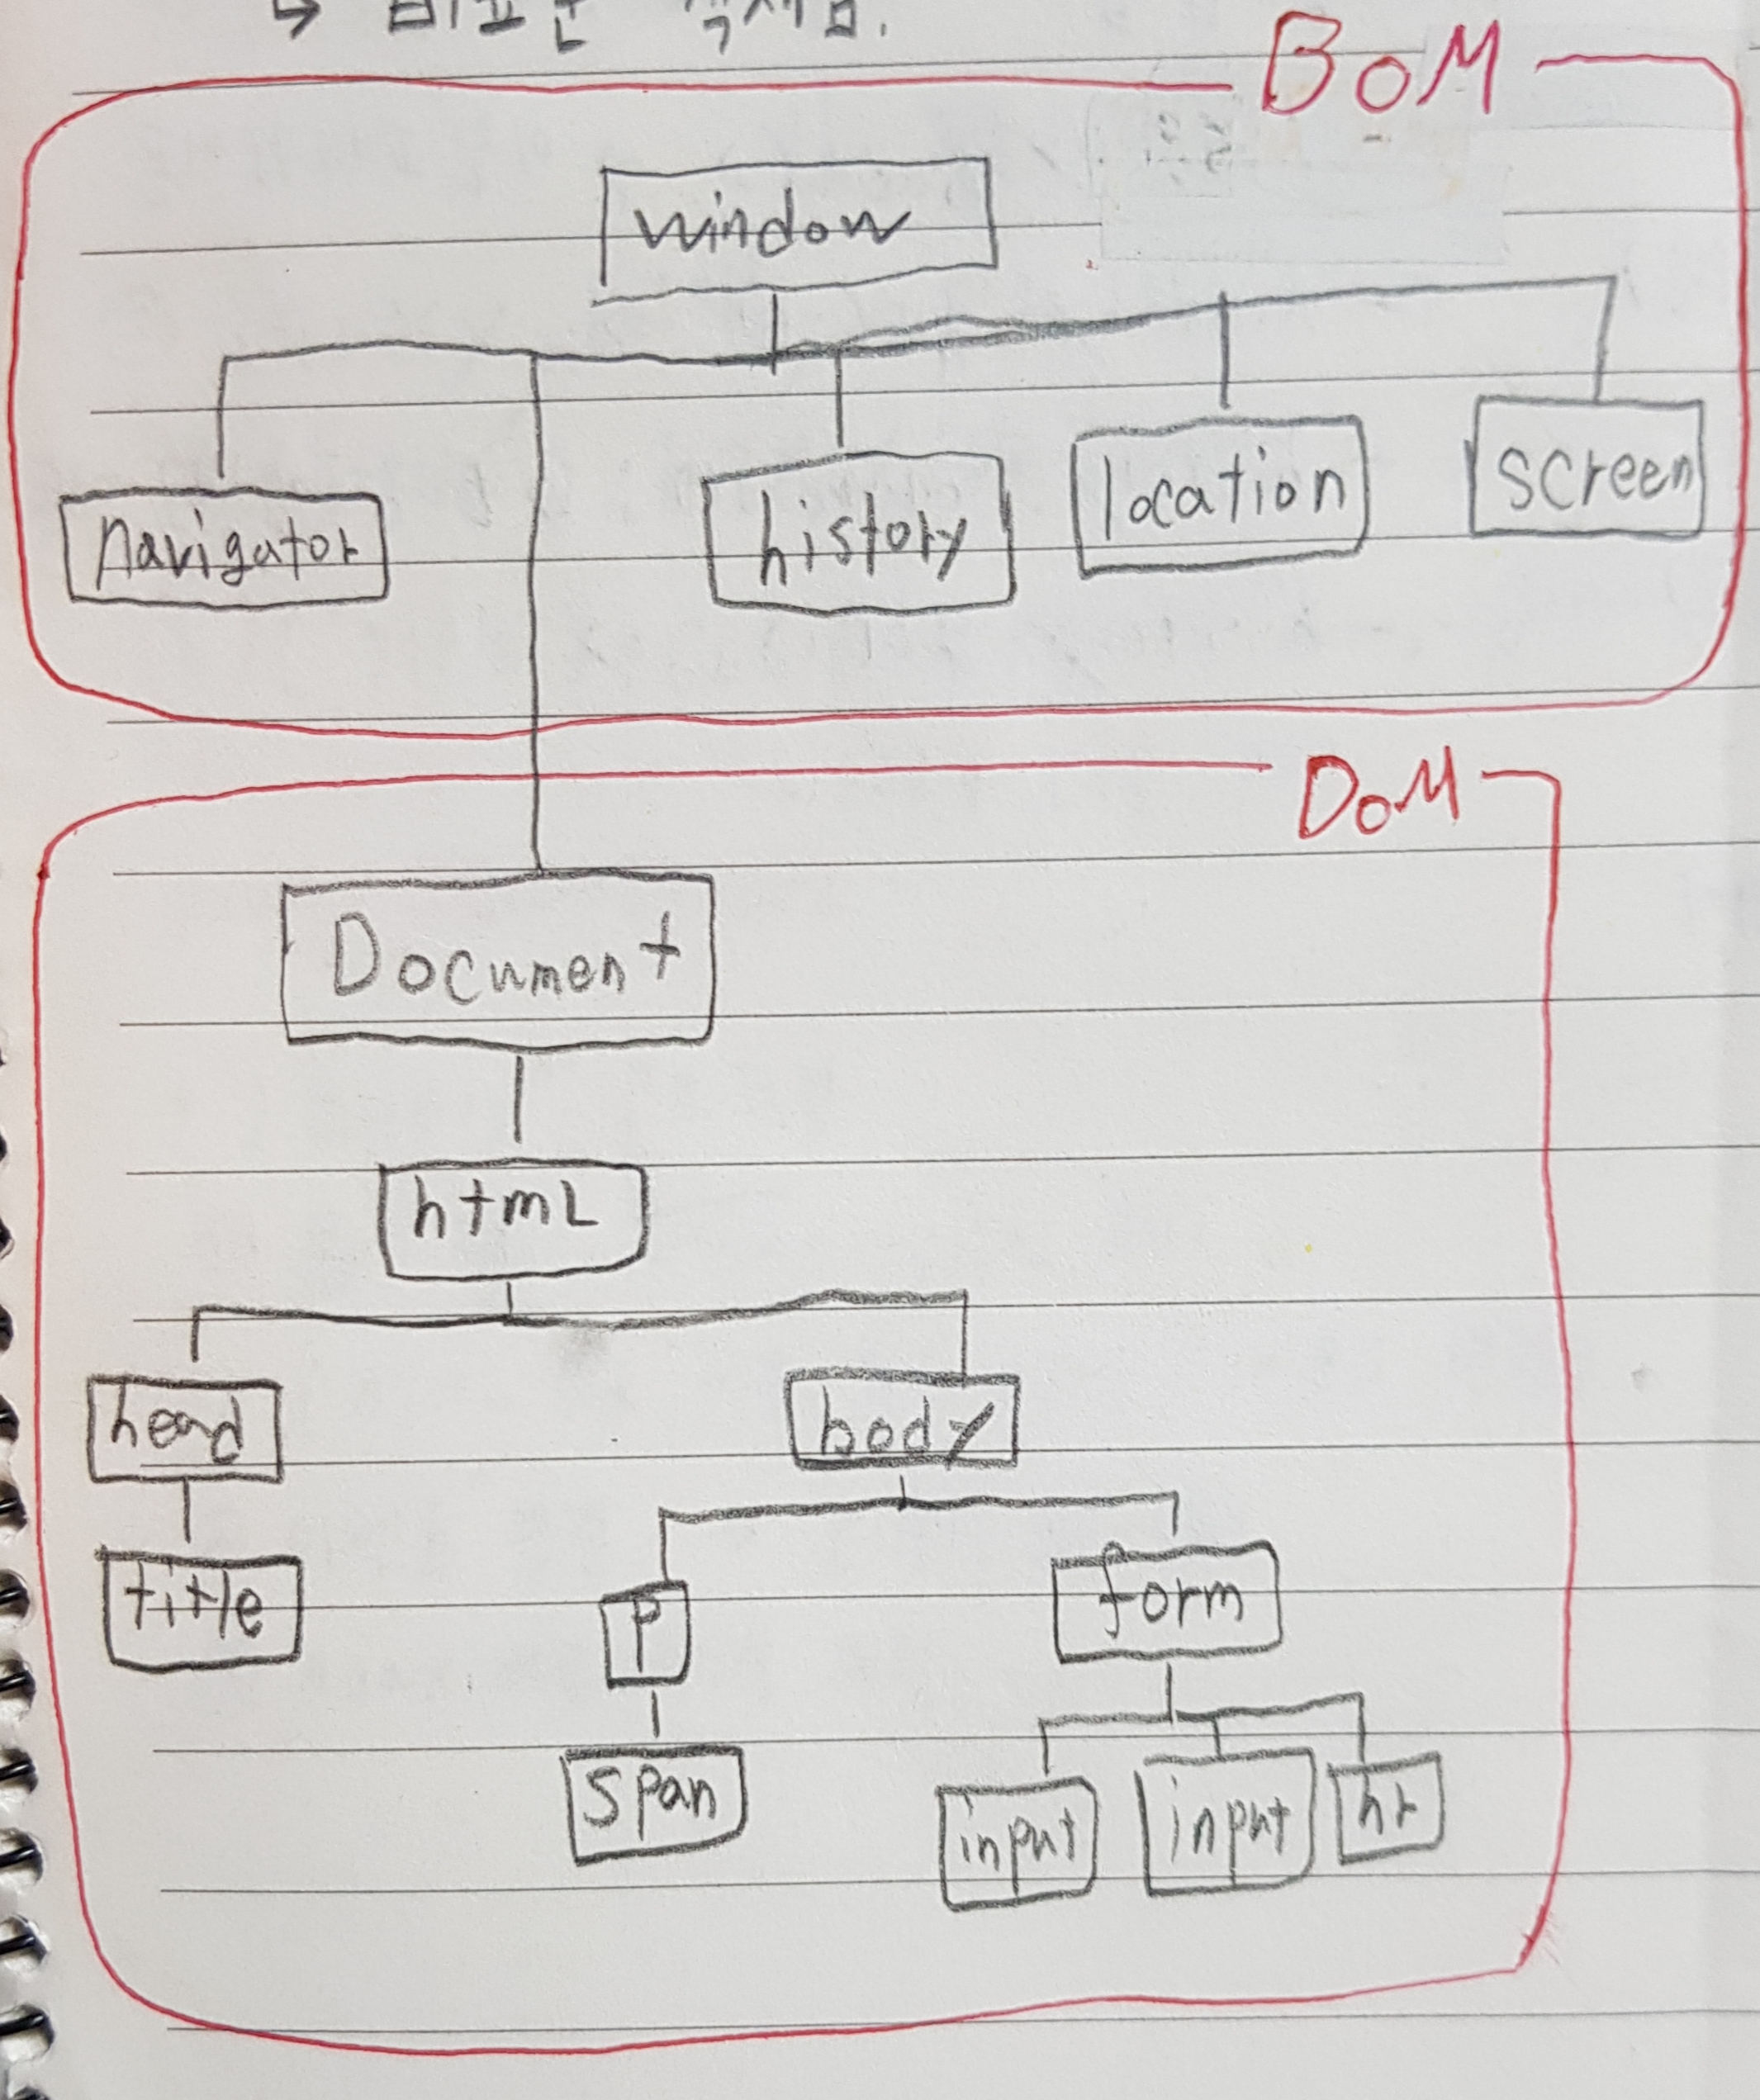 BOM
window
navigator
history
location
screen
DOM
Document
html
head
body
title
P
form
span
input
input
hr